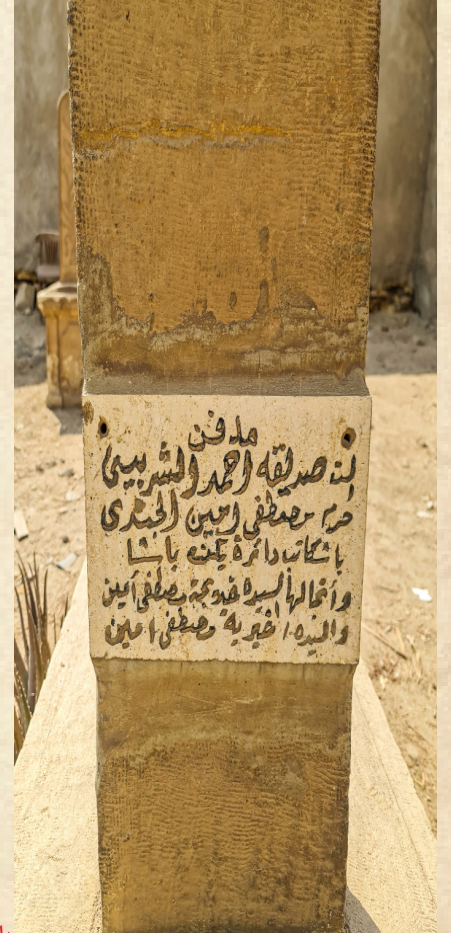 مدفن
الست صديقه احمد الشربيني
حرم مصطفى امين الجندى
باشكاتب دائرة يكن باشا
وأنجالها السيدة خديجة مصطفى أمين
والسيده خيرية مصطفى امين